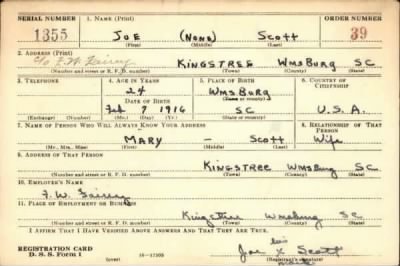 SERIAL NUMBER 1. NAME (Print) ORDER NUMBER
1355 JOE (NONE) SCOTT 39
(First) (Middle) (Last)
2. ADDRESS (Print)
c/o F.W. Fairey KINGSTREE WmsBurg SC
(Number and street or R. F. D. number) (Town) (County) (State)
3. TELEPHONE 4. AGE IN YEARS 5. PLACE OF BIRTH 6. COUNTRY OF CITIZENSHIP
24 WmsBurg
DATE OF BIRTH (Town or county)
Feb 7 1916 SC U.S.A.
(Exchange) (Number) (Mo.) (Day) (Yr.) (State or country)
7. NAME OF PERSON WHO WILL ALWAYS KNOW YOUR ADDRESS 8. RELATIONSHIP OF THAT PERSON
MARY — Scott Wife
(Mr., Mrs., Miss) (First) (Middle) (Last)
9. ADDRESS OF THAT PERSON
KINGSTREE WmsBurg S.C.
(Number and street or R. F. D. number) (Town) (County) (State)
10. EMPLOYER'S NAME
F. W. Fairey
11. PLACE OF EMPLOYMENT OR BUSINESS
Kingstree Wmsburg SC
(Number and street or R. F. D. number) (Town) (County) (State)
I AFFIRM THAT I HAVE VERIFIED ABOVE ANSWERS AND THAT THEY ARE TRUE.
REGISTRATION CARD his
D. S. S. Form 1 (over) Joe X Scott
(Registrant's signature)
mark